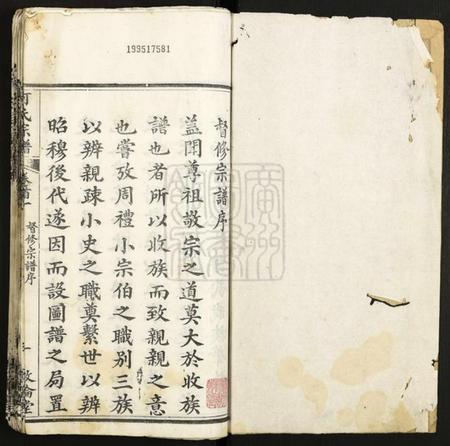 199517581
督修宗譜序
蓋聞尊祖敬宗之道莫大於收族
譜也者所以收族而致親親之意
也嘗攷周禮小宗伯之職別三族
以辨親疎小史之職奠繫世以辨
昭穆後代遂因而設圖譜之局置
氏宗譜
督修宗譜序
一
敦倫堂